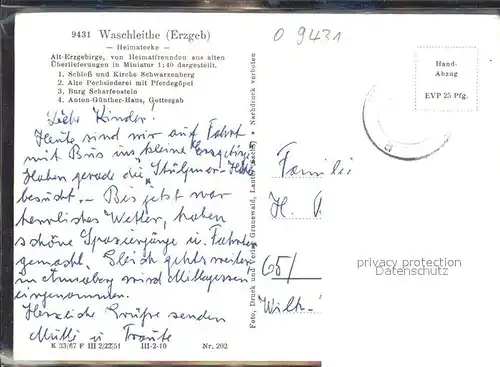 9431 Waschleithe (Erzgeb)
— Heimatecke —
Alt-Erzgebirge, von Heimatfreunden aus alten
Überlieferungen in Miniatur 1:40 dargestellt.
1. Schloß und Kirche Schwarzenberg
2. Alte Pechsiederei mit Pferdegöpel
3. Burg Scharfenstein
4. Anton-Günther-Haus, Gottesgab
Liebe Kinder!
Heute sind wir auf Fahrt
mit Bus ins kleine Erzgebirge
Haben gerade die
besucht. – Bis jetzt war
herrliches Wetter, haben
schöne Spaziergänge u. Fahrten
gemacht. Gleich gehts weiter
in Annaberg wird Mittagessen
eingenommen.
Herzliche Grüße senden
Mutti u Traute
K 33/67 F III 2/22/51 III-2-10 Nr. 202
Foto, Druck und Verlag Grunewald, Nachdruck verboten
0 9431
Hand-
Abzug
EVP 25 Pfg.
Familie
H.
65/
Wilh-
privacy protection
Datenschutz